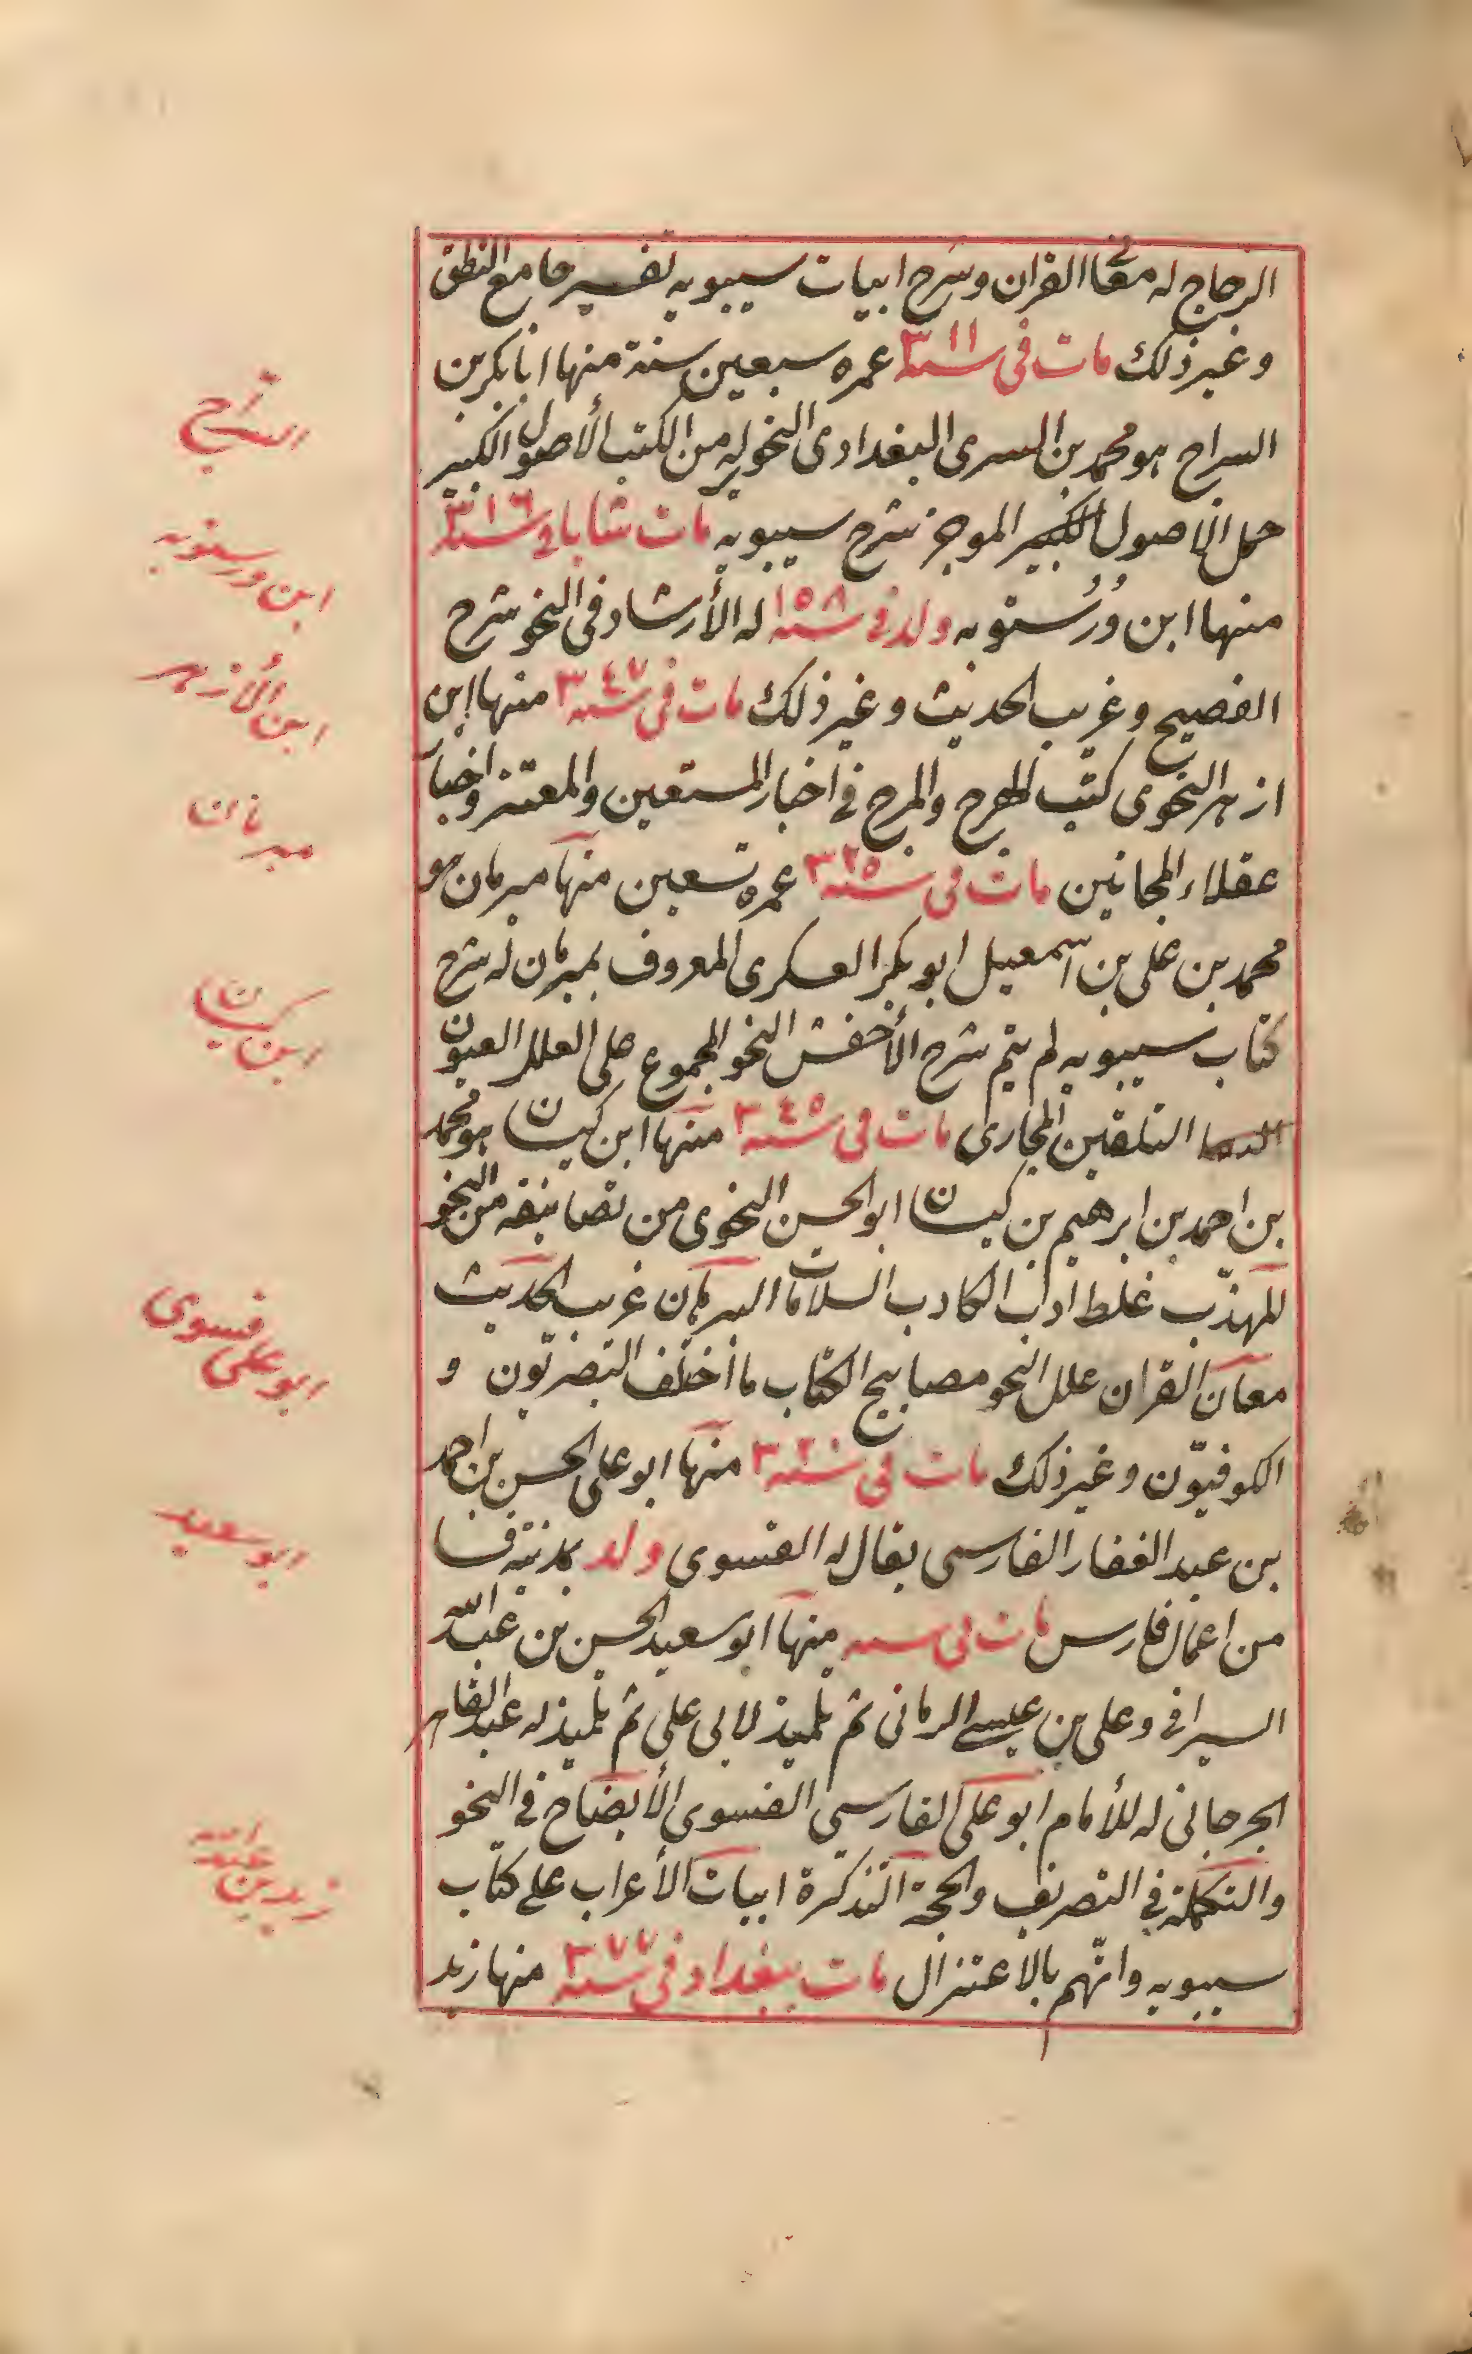 الزجاج له معانى القران وشرح ابيات سيبويه تفسير جامع النطق
وغير ذلك مات فى سنة ٣١١ عمره سبعين سنة منها ابا بكر بن
السراج هو محمد بن السرى البغدادى النحو له من الكتب الأصول الكبير
جمل الاصول الكبير الموجز شرح سيبويه مات شابا فى سنة ٣١٦
منها ابن دُرُستويه ولد فى سنة ١٥٨ له الأرشاد فى النحو شرح
الفصيح وغريب الحديث وغير ذلك مات فى سنة ٣٤٧ منها ابن
ازهر النحوى كتب الهرج والمرج فى اخبار المستعين والمعتز واخبار
عقلاء المجانين مات فى سنة ٣٢٥ عمره تسعين منها مبرمان هو
محمد بن على بن اسمعيل ابو بكر العسكرى المعروف بمبرمان له شرح
كتاب سيبويه لم يتم شرح الأخفش النحو المجموع على العلل العيون
التلقين المجارى مات فى سنة ٣٤٥ منها ابن كيسان هو محمد
بن احمد بن ابرهيم بن كيسان ابو الحسن النحوى من تصانيفه من النحو
المهذّب غلط اداب الكاتب البرهان غريب الحديث
معان القران علل النحو مصابيح الكتاب ما اختلف البصريّون و
الكوفيّون وغير ذلك مات فى سنة ٣٢٠ منها ابو على الحسن بن احمد
بن عبد الغفار الفارسى يقال له الفسوى ولد بمدينة فسا
من اعمال فارس مات فى سنه منها ابو سعيد الحسن بن عبد الله
السيرافى وعلى بن عيسى الرمانى ثم تلميذ لابى على ثم تلميذ له عبد القاهر
الجرجانى له للأمام ابو على الفارسى الفسوى الأيضاح فى النحو
والتكملة فى التصريف والحجة التذكرة ابيات الأعراب على كتاب
سيبويه واتّهم بالاعتزال مات ببغداد فى سنة ٣٧٧ منها زيد
السراج
ابن درستويه
ابن الأزهر
مبرمان
ابن كيسان
ابو على فسوى
ابو سعيد
زيد بن عبد الله